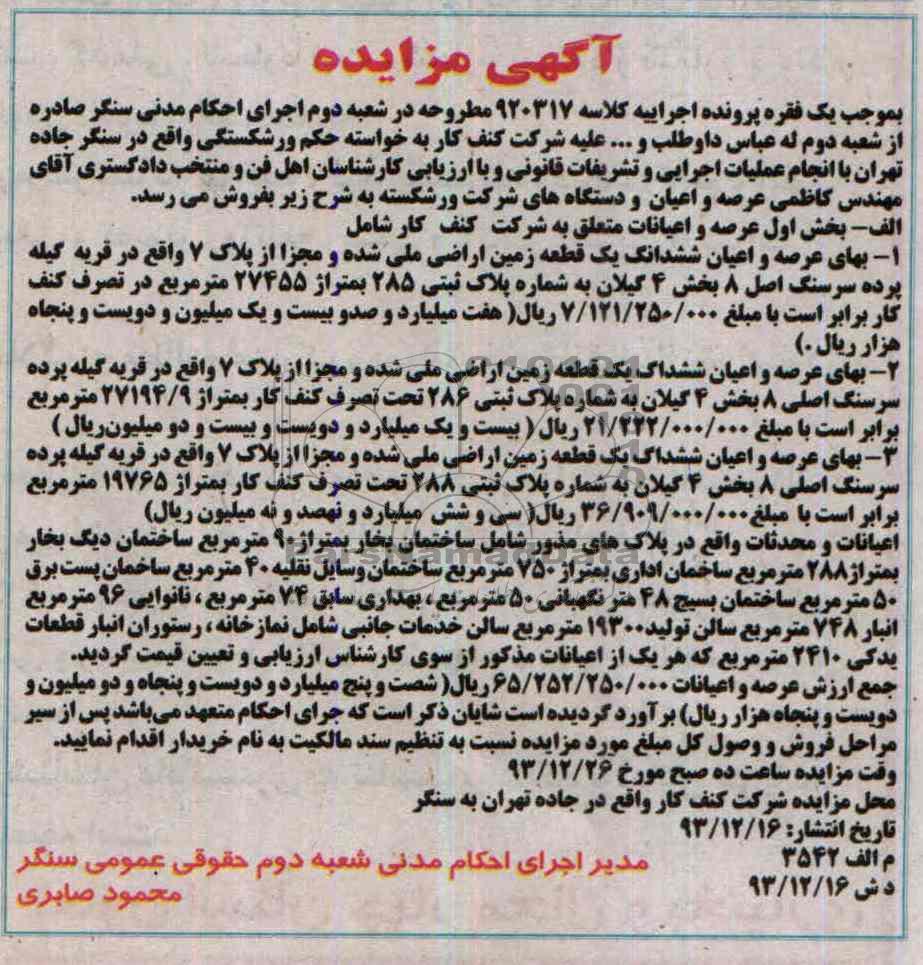 آگهی مزایده
بموجب یک فقره پرونده اجراییه کلاسه ۹۲۰۳۱۷ مطروحه در شعبه دوم اجرای احکام مدنی سنگر صادره
از شعبه دوم له عباس داوطلب و ... علیه شرکت کنف کار به خواسته حکم ورشکستگی واقع در سنگر جاده
تهران با انجام عملیات اجرایی و تشریفات قانونی و با ارزیابی کارشناسان اهل فن و منتخب دادگستری آقای
مهندس کاظمی عرصه و اعیان و دستگاه های شرکت ورشکسته به شرح زیر بفروش می رسد.
الف- بخش اول عرصه و اعیانات متعلق به شرکت کنف کار شامل
۱- بهای عرصه و اعیان ششدانگ یک قطعه زمین اراضی ملی شده و مجزا از پلاک ۷ واقع در قریه گیله
پرده سرسنگ اصل ۸ بخش ۴ گیلان به شماره پلاک ثبتی ۲۸۵ بمتراژ ۲۷۴۵۵ مترمربع در تصرف کنف
کار برابر است با مبلغ ۷/۱۲۱/۲۵۰/۰۰۰ ریال( هفت میلیارد و صدو بیست و یک میلیون و دویست و پنجاه
هزار ریال .)
۲- بهای عرصه و اعیان ششداگ یک قطعه زمین اراضی ملی شده و مجزا از پلاک ۷ واقع در قریه گیله پرده
سرسنگ اصلی ۸ بخش ۴ گیلان به شماره پلاک ثبتی ۲۸۶ تحت تصرف کنف کار بمتراژ ۲۷۱۹۴/۹ مترمربع
برابر است با مبلغ ۲۱/۲۲۲/۰۰۰/۰۰۰ ریال ( بیست و یک میلیارد و دویست و بیست و دو میلیون‌ریال )
۳- بهای عرصه و اعیان ششداگ یک قطعه زمین اراضی ملی شده و مجزا از پلاک ۷ واقع در قریه گیله پرده
سرسنگ اصلی ۸ بخش ۴ گیلان به شماره پلاک ثبتی ۲۸۸ تحت تصرف کنف کار بمتراژ ۱۹۷۶۵ مترمربع
برابر است با مبلغ ۳۶/۹۰۹/۰۰۰/۰۰۰ ریال( سی و شش میلیارد و نهصد و نه میلیون ریال)
اعیانات و محدثات واقع در پلاک های مذور شامل ساختمان بخار بمتراژ ۹۰ مترمربع ساختمان دیگ بخار
بمتراژ ۲۸۸ مترمربع ساخمان اداری بمتراژ ۷۵۰ مترمربع ساختمان وسایل نقلیه ۴۰ مترمربع ساخمان پست برق
۵۰ مترمربع ساختمان بسیج ۴۸ متر نگهبانی ۵۰ مترمربع ، بهداری سابق ۷۴ مترمربع ، نانوایی ۹۶ مترمربع
انبار ۷۴۸ مترمربع سالن تولید ۱۹۳۰۰ مترمربع سالن خدمات جانبی شامل نمازخانه ، رستوران انبار قطعات
یدکی ۲۴۱۰ مترمربع که هر یک از اعیانات مذکور از سوی کارشناس ارزیابی و تعیین قیمت گردید.
جمع ارزش عرصه و اعیانات ۶۵/۲۵۲/۲۵۰/۰۰۰ ریال( شصت و پنج میلیارد و دویست و پنجاه و دو میلیون و
دویست و پنجاه هزار ریال) بر آورد گردیده است شایان ذکر است که جرای احکام متعهد می‌باشد پس از سیر
مراحل فروش و وصول کل مبلغ مورد مزایده نسبت به تنظیم سند مالکیت به نام خریدار اقدام نمایید.
وقت مزایده ساعت ده صبح مورخ ۹۳/۱۲/۲۶
محل مزایده شرکت کنف کار واقع در جاده تهران به سنگر
تاریخ انتشار: ۹۳/۱۲/۱۶
م الف ۳۵۴۲
د ش ۹۳/۱۲/۱۶
مدیر اجرای احکام مدنی شعبه دوم حقوقی عمومی سنگر
محمود صابری